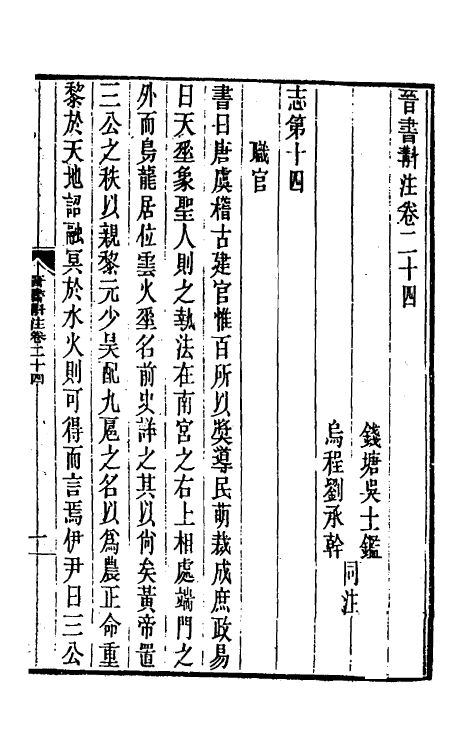 晉書斠注卷二十四
錢塘吳士鑑
烏程劉承幹
同注
志第十四
職官
書曰唐虞稽古建官惟百所以奬導民萌裁成庶政易
曰天垂象聖人則之執法在南宮之右上相處端門之
外而鳥龍居位雲火垂名前史詳之其以尚矣黃帝置
三公之秩以親黎元少昊配九扈之名以爲農正命重
黎於天地詔融冥於水火則可得而言焉伊尹曰三公
晉書斠注卷二十四
一